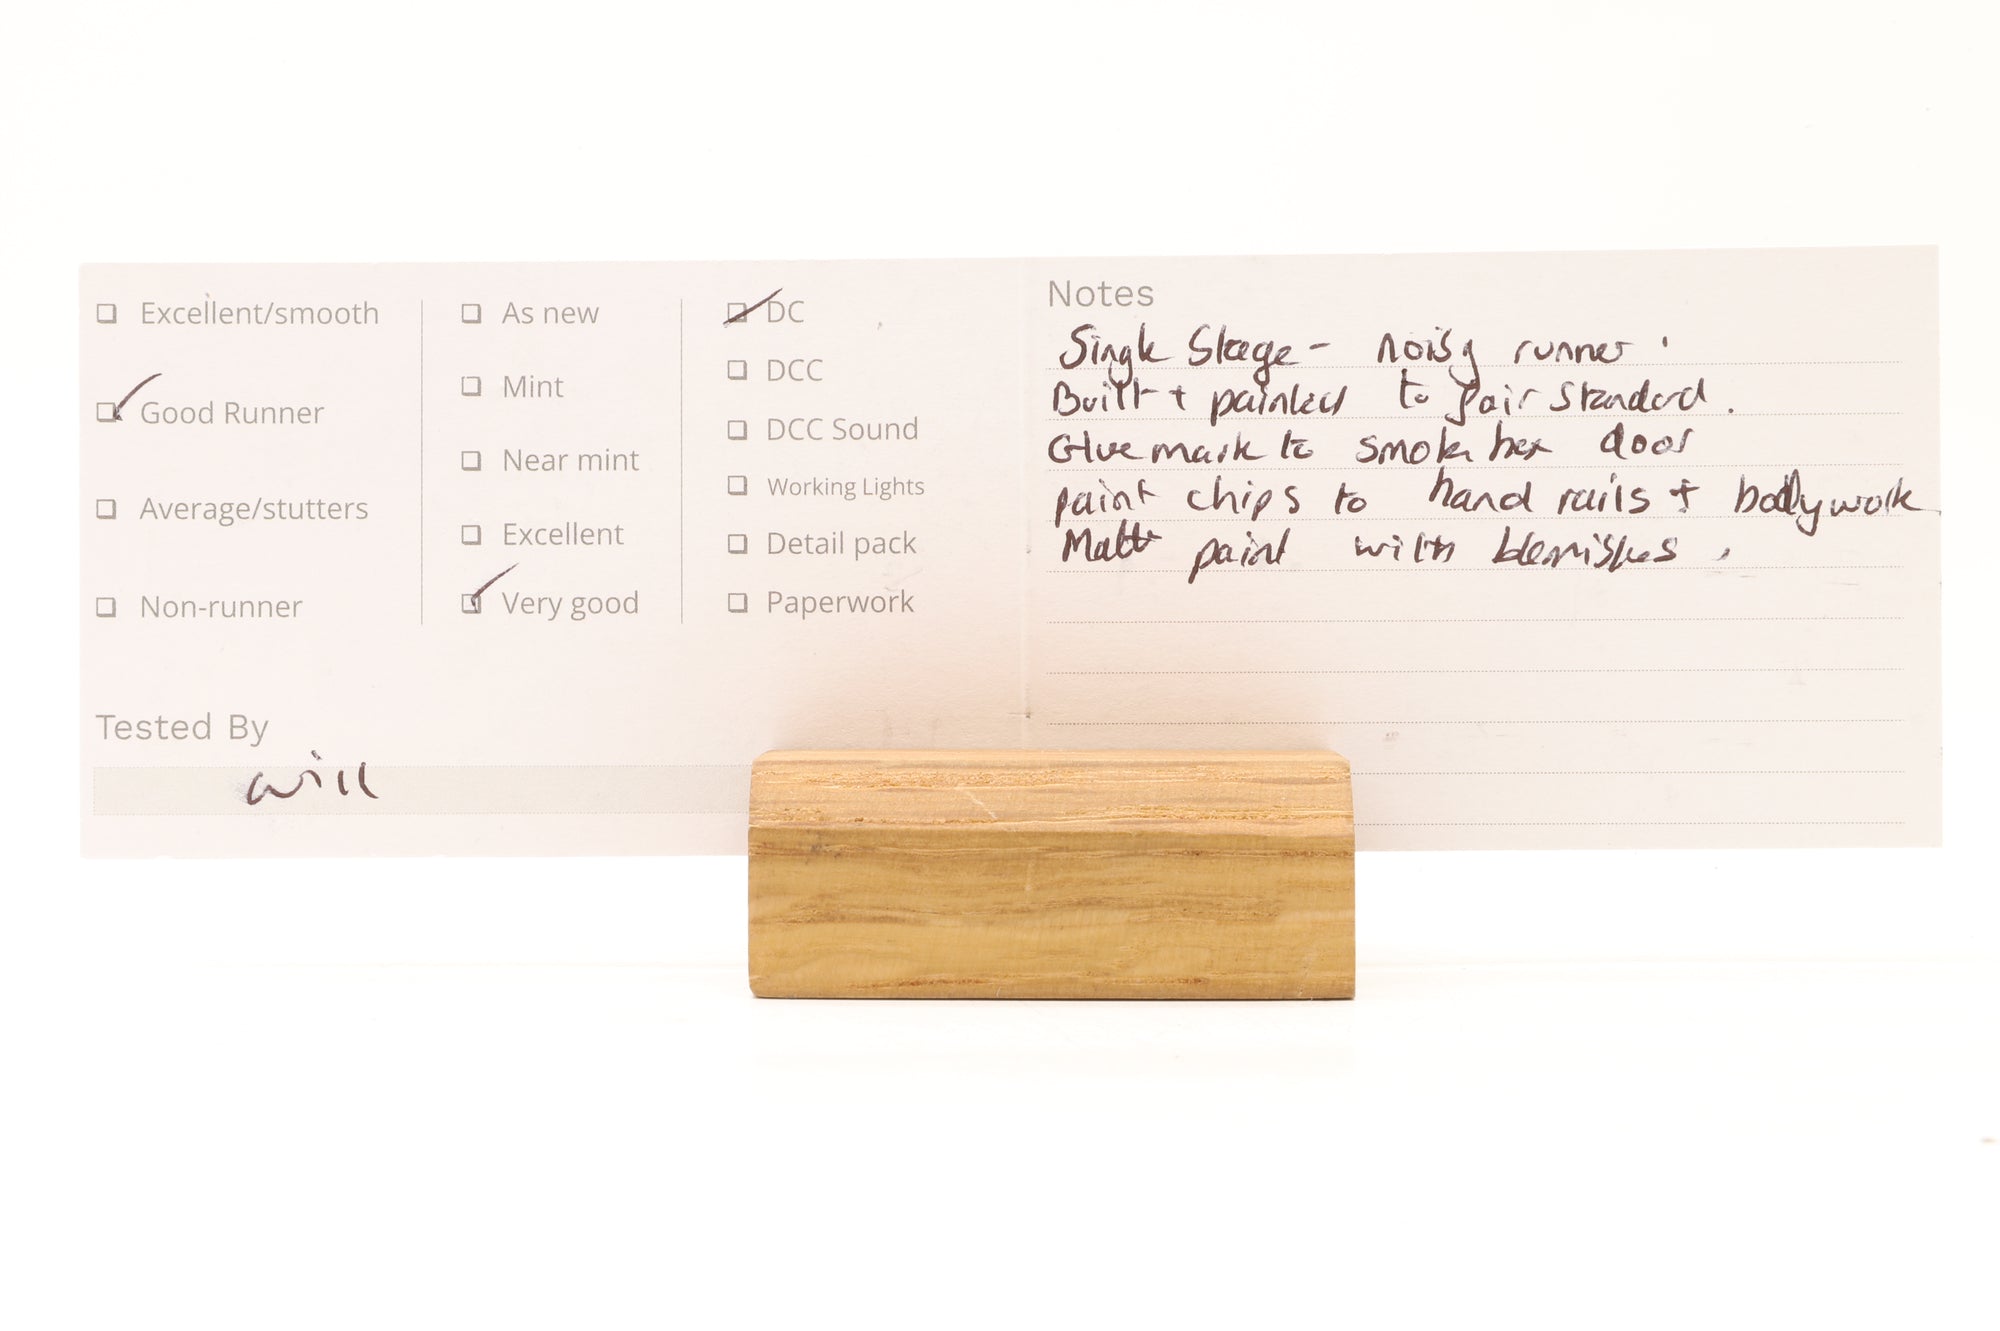 Excellent/smooth
Good Runner
Average/stutters
Non-runner
As new
Mint
Near mint
Excellent
Very good
DC
DCC
DCC Sound
Working Lights
Detail pack
Paperwork
Tested By
will
Notes
Single Stage - noisy runner.
Built + painted to fair standard.
Glue mark to smoke box door
paint chips to hand rails + bodywork
Matt paint with blemishes.